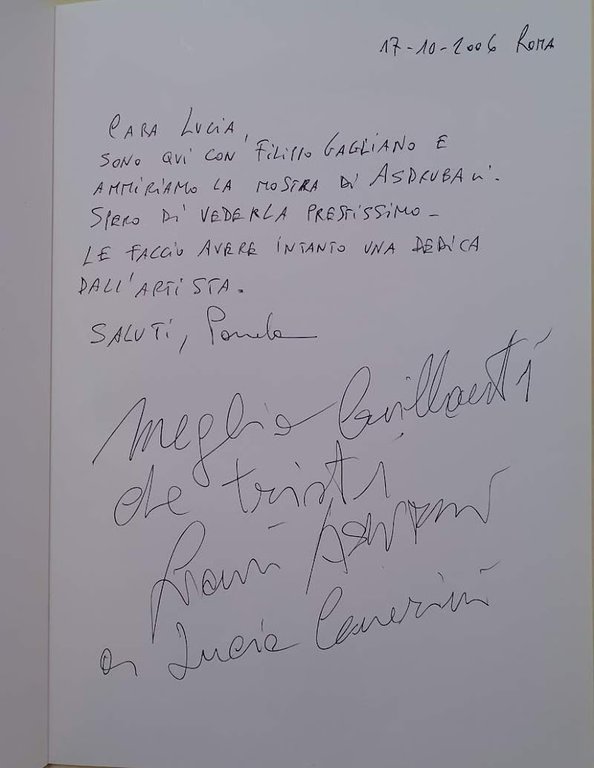 17-10-2006 ROMA
CARA LUCIA,
SONO QUI CON FILIPPO GAGLIANO E
AMMIRIAMO LA MOSTRA DI ASDRUBALI.
SPERO DI VEDERLA PRESTISSIMO-
LE FACCIO AVERE INTANTO UNA DEDICA
DALL'ARTISTA.
SALUTI,
Meglio brillanti
che tristi
Gianni Asdrubali
a Lucia